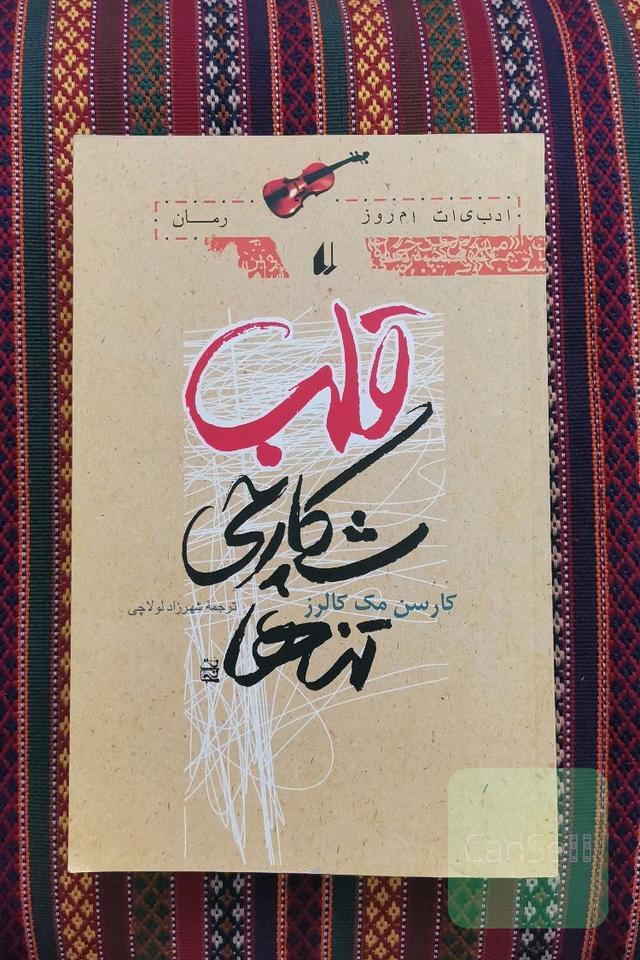 ادبیات امروز
رمــان
قلب
شکارچی
کارسن مک کالرز
ترجمهٔ شهرزاد لولاچی
تنها
CanSell